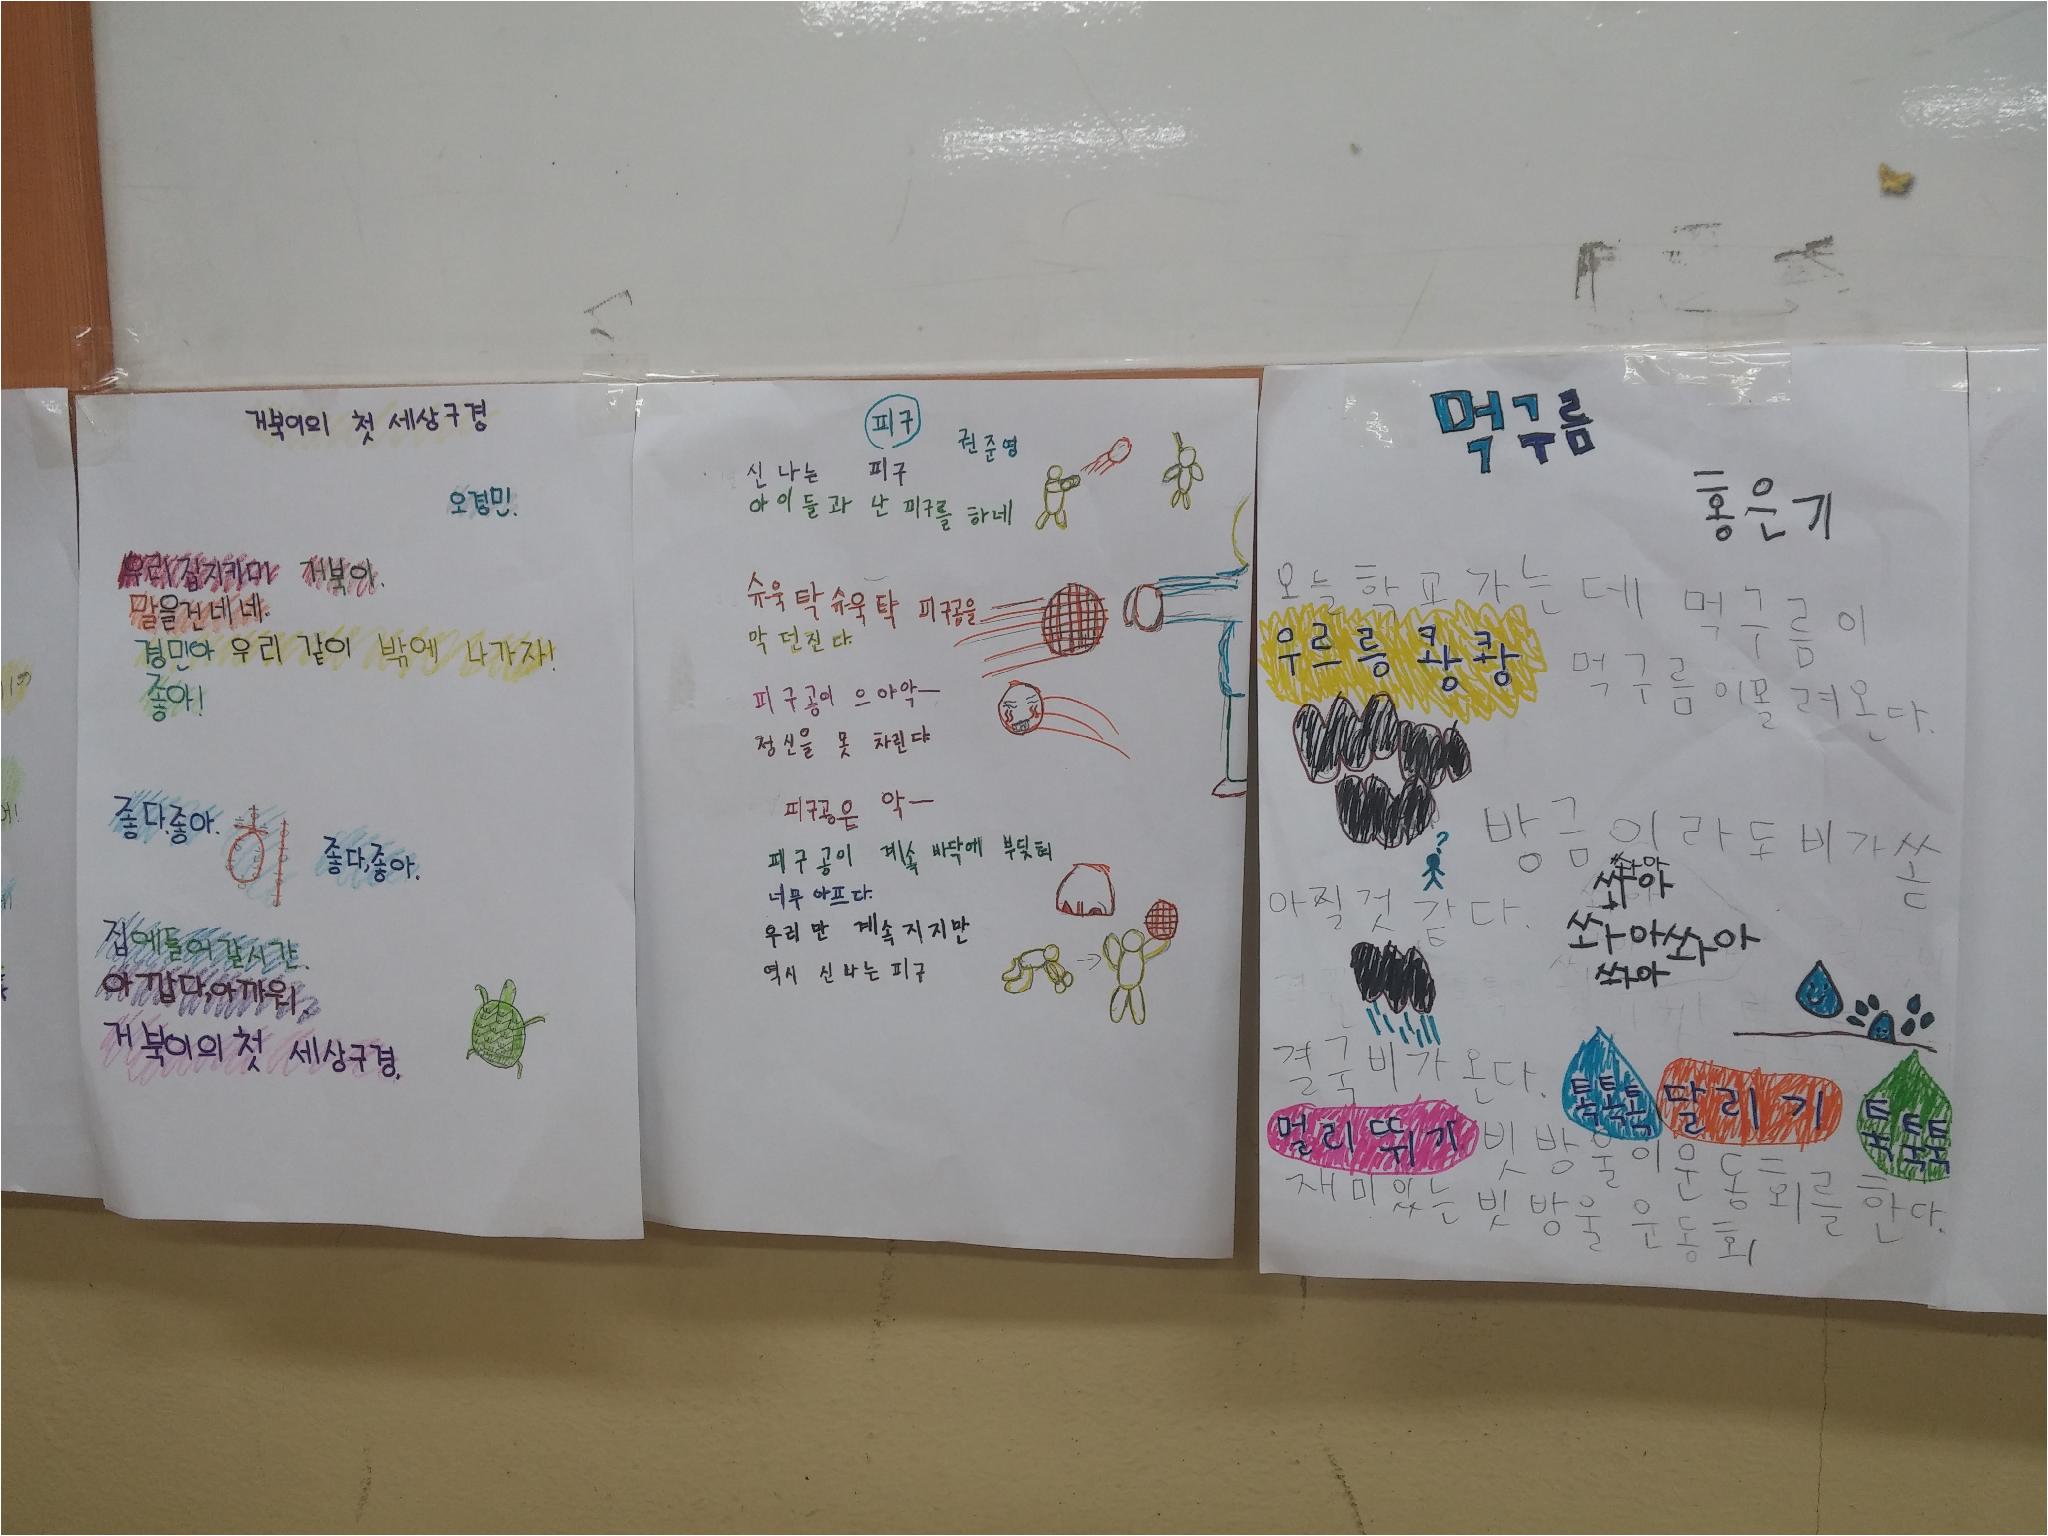 거북이의 첫 세상구경
오경민.
우리집지키미 거북아.
말을건네네.
경민아 우리 같이 밖에 나가자!
좋아!
좋다.좋아.
좋다,좋아.
집에들어갈시간.
아깝다,아까워.
거북이의 첫 세상구경.
피구
권준영
신나는 피구
아이들과 난 피구를 하네
슈욱탁 슈욱탁 피구공을
막 던진다.
피구공이 으아악ㅡ
정신을 못 차린다
피구공은 악ㅡ
피구공이 계속 바닥에 부딪혀
너무 아프다.
우리만 계속 지지만
역시 신나는 피구
먹구름
홍은기
오늘 학교 가는데 먹구름이
우르릉 쾅쾅 먹구름이몰려온다.
방금이라도 비가쏟
아질것 같다.
쏴아
쏴아
쏴아쏴아
쏴아
결국비가 온다. 톡톡톡 달리기 툭툭툭
멀리뛰기 빗방울이운동회를 한다.
재미있는 빗방울 운동회